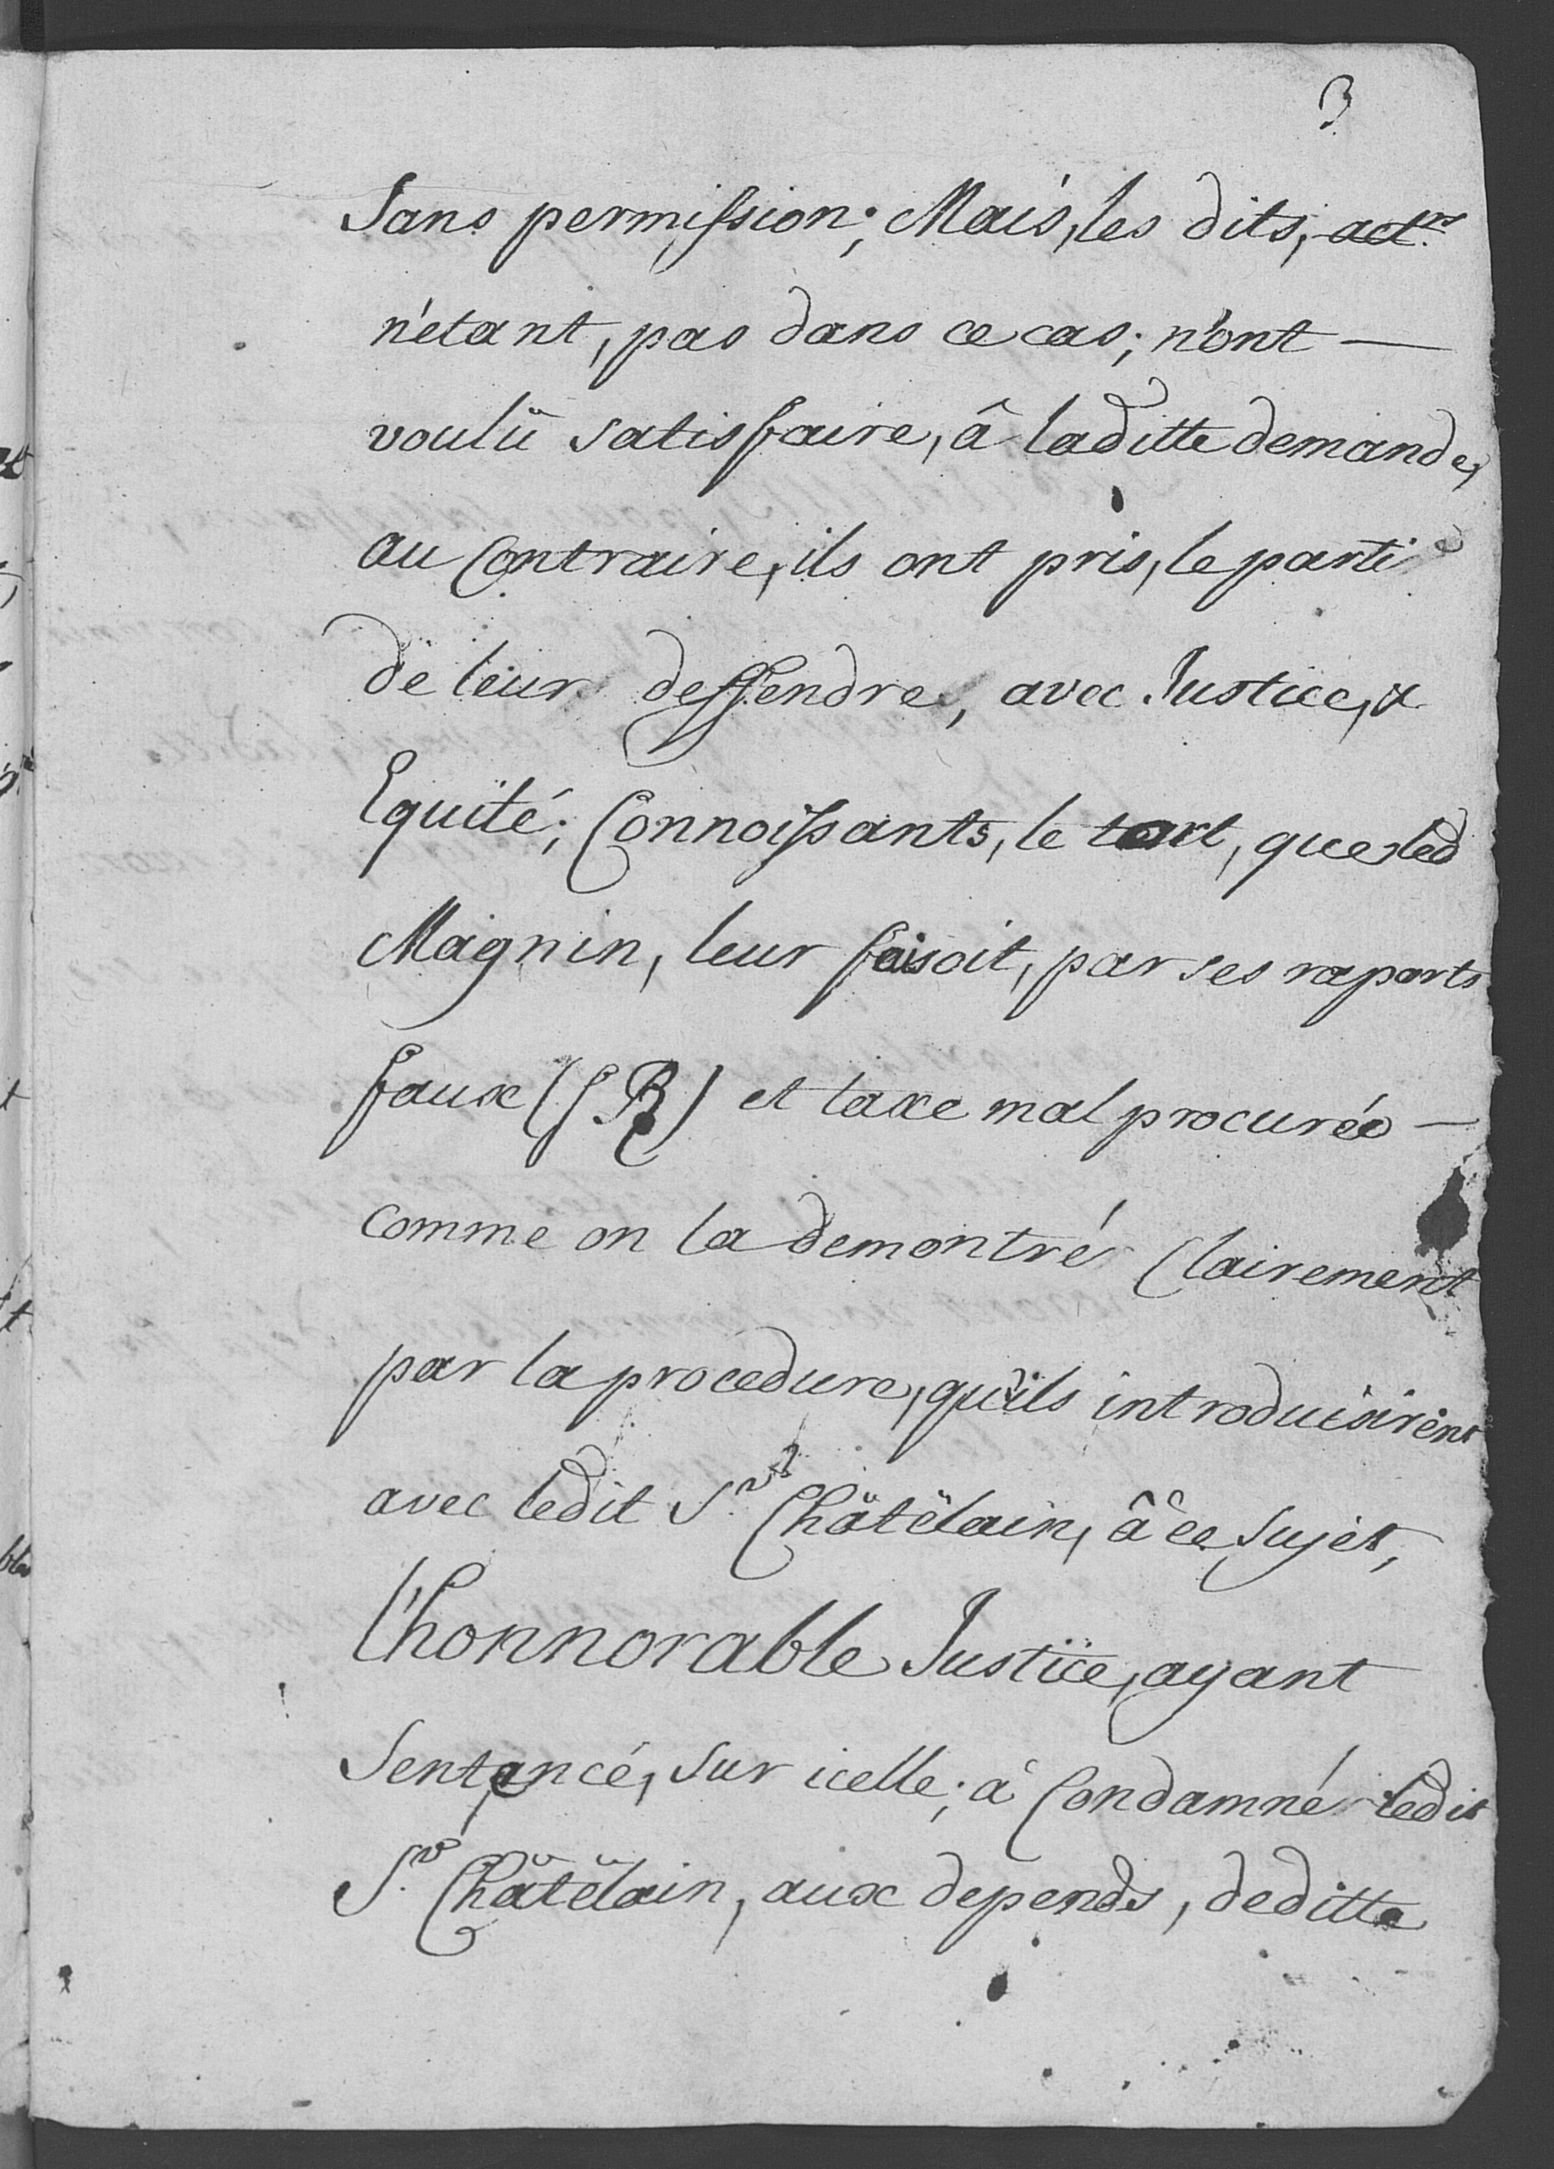 3
Sans permission; Mais, les dits, actrs
n'etant, pas dans ce cas; n'ont —
voulu satisfaire, â laditte demande,
au Contraire, ils ont pris, le parti
de leur deffendre, avec Justice, &
Equité; Connoissants, le tort, que led
Magnin, leur faisoit, par ses raports
faux (S R) et taxe mal procurée —
comme on la demontré Clairement
par la procedure, qu'ils introduisirent
avec ledit Sr. Châtelain, â ce sujet,
l'honnorable Justice, ayant
Sentencé, sur icelle; à Condamné ledit
Sr. Châtelain, aux depends, deditte